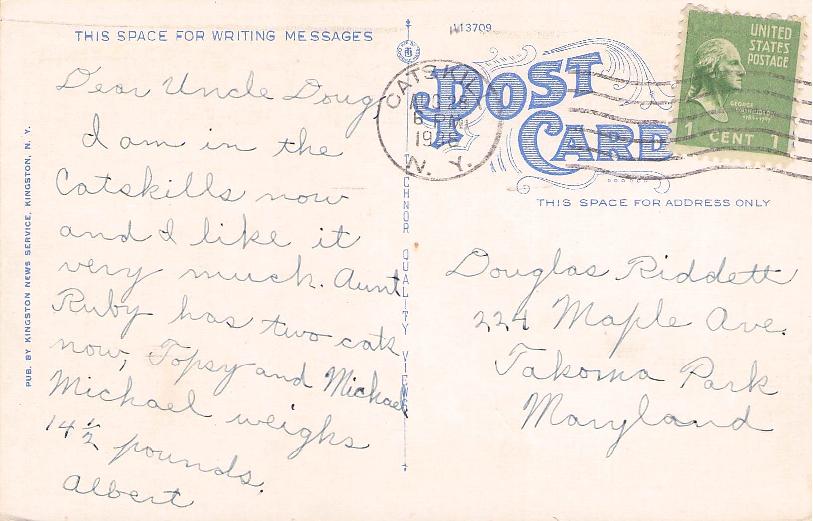 THIS SPACE FOR WRITING MESSAGES
Dear Uncle Doug,
I am in the
Catskills now
and I like it
very much. Aunt
Ruby has two cats
now, Topsy and Michael
Michael weighs
14½ pounds.
Albert
PUB. BY KINGSTON NEWS SERVICE, KINGSTON, N. Y.
13709
POST CARD
CATSKILL
6 PM
N. Y.
UNITED
STATES
POSTAGE
GEORGE
WASHINGTON
1 CENT 1
THIS SPACE FOR ADDRESS ONLY
TICHNOR QUALITY VIEWS
Douglas Riddett
224 Maple Ave.
Takoma Park
Maryland